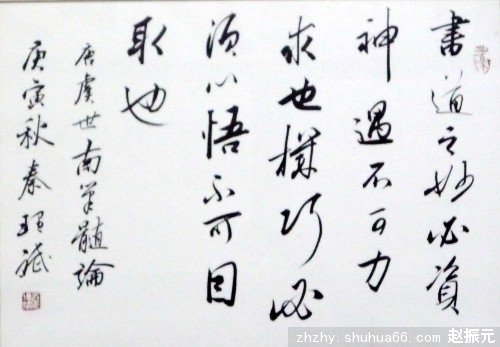 書道之妙必資
神遇不可力
求也機巧必
須心悟不可目
取也
唐虞世南筆髓論
庚寅秋秦
zhzhy.shuhua66.com 赵振元